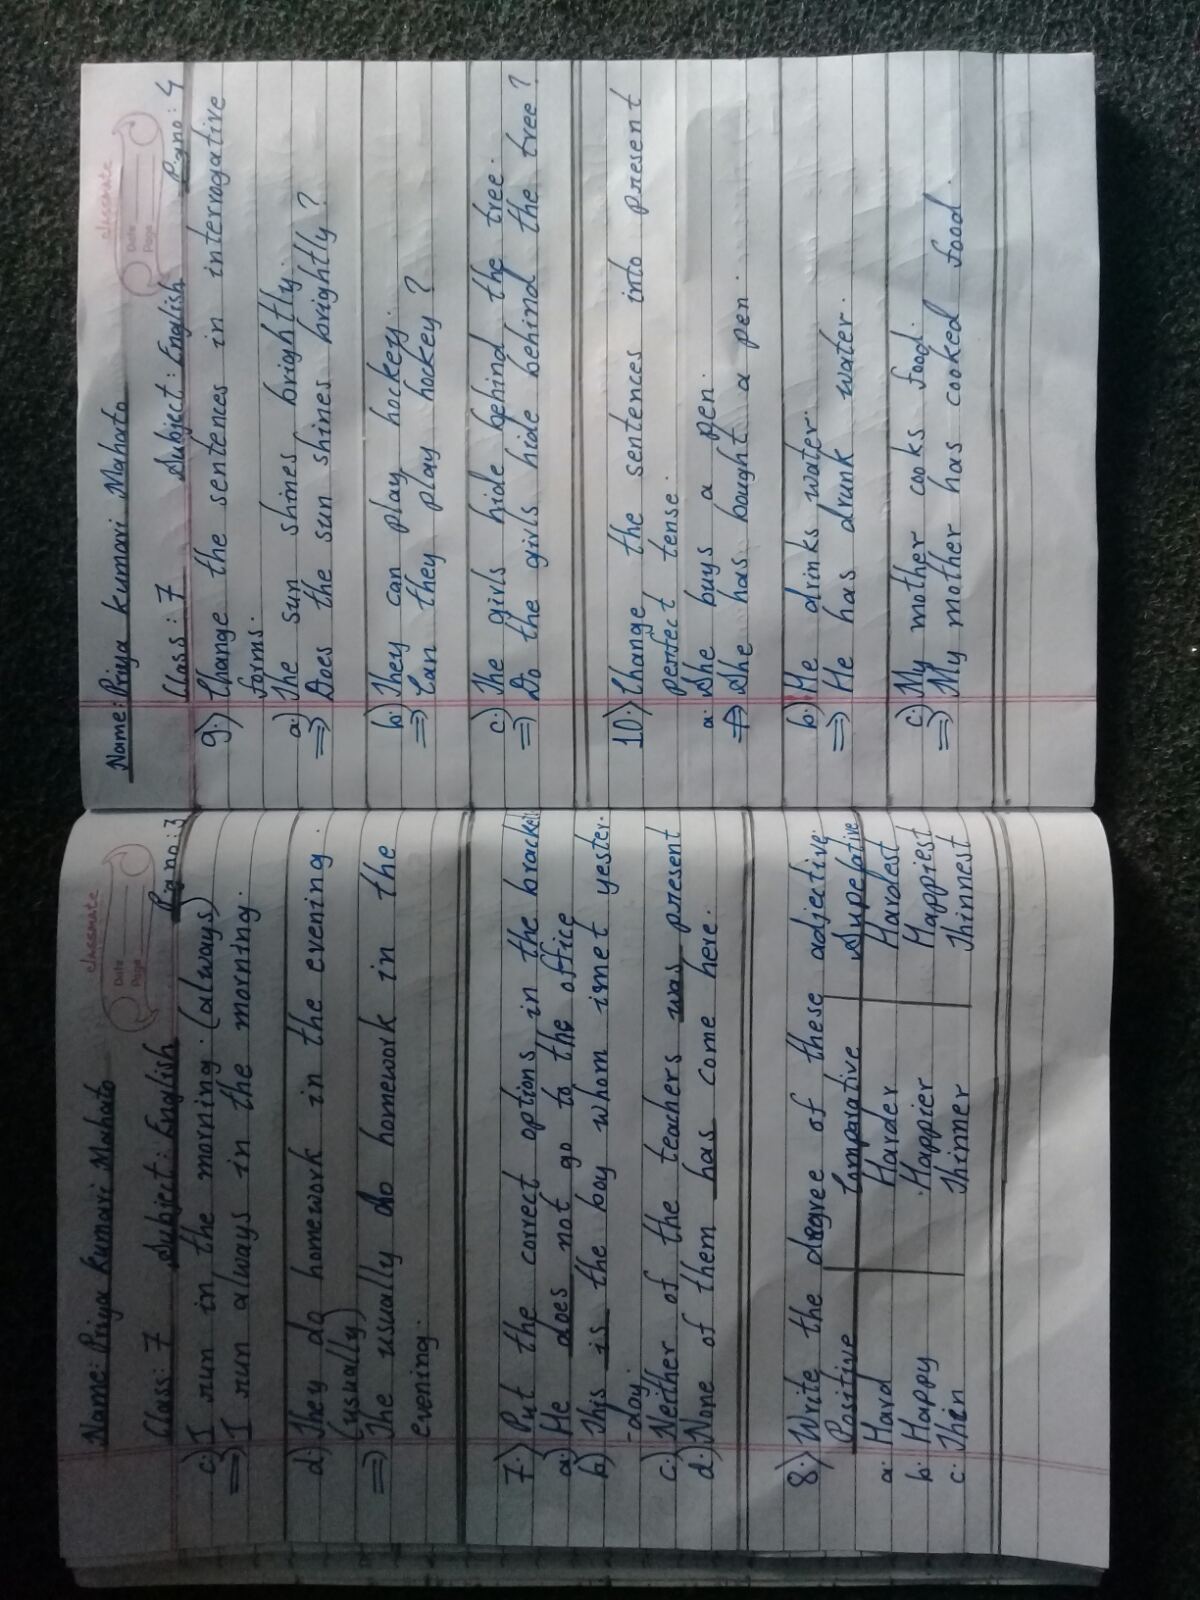 classmate
Date
Page
Name: Priya Kumari Mahato
Class: 7 Subject: English P.g no: 3
c.) I run in the morning. (always)
⇒ I run always in the morning.
d.) They do homework in the evening.
(usually)
⇒ The usually do homework in the
evening.
7.) Put the correct options in the bracket
a.) He does not go to the office
b.) This is the boy whom i met yester-
-day.
c.) Neither of the teachers was present
d.) None of them has come here.
8.) Write the degree of these adjective
Positive Comparative Superlative
a. Hard Harder Hardest
b. Happy Happier Happiest
c. Thin Thinner Thinnest
classmate
Date
Page
Name: Priya Kumari Mahato
Class: 7 Subject: English P.g no: 4
9.) Change the sentences in interrogative
forms.
a.) The sun shines brightly.
⇒ Does the sun shines brightly?
b.) They can play hockey.
⇒ Can they play hockey?
c.) The girls hide behind the tree.
⇒ Do the girls hide behind the tree?
10.) Change the sentences into present
perfect tense.
a. She buys a pen.
⇒ She has bought a pen.
b.) He drinks water.
⇒ He has drunk water.
c.) My mother cooks food.
⇒ My mother has cooked food.